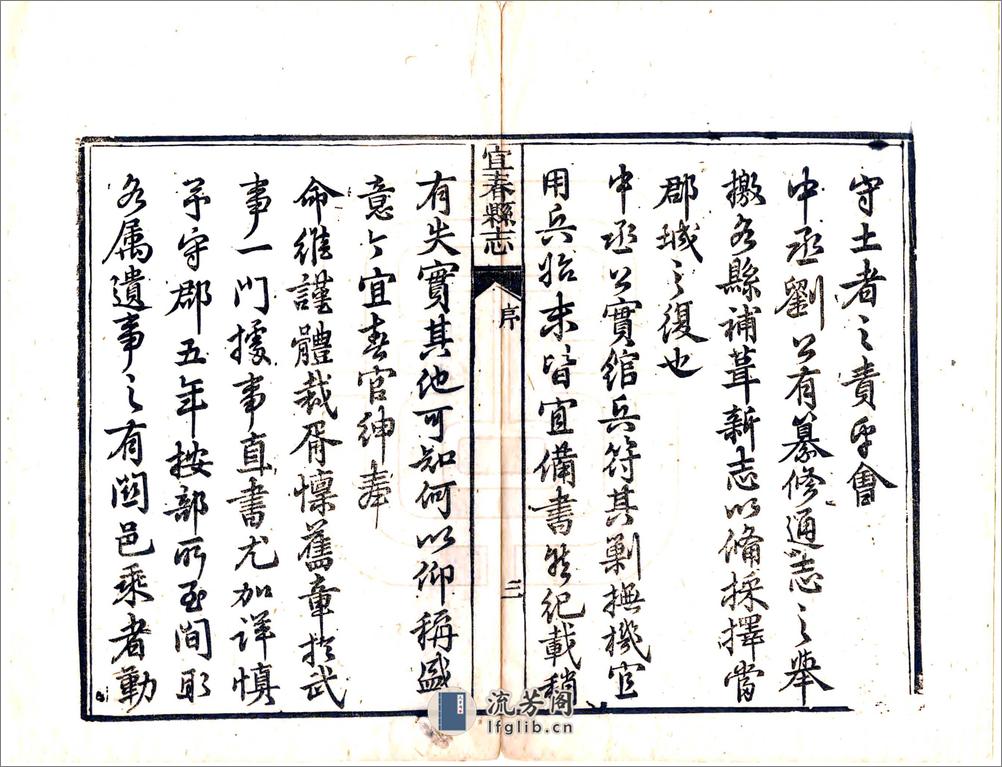 守土者之責乎會
中丞劉公有纂修通志之舉
檄各縣補葺新志以備採擇當
郡城之復也
中丞公實綰兵符其剿撫機宜
用兵始末皆宜備書然紀載稍
宜春縣志
序
三
有失實其他可知何以仰稱盛
意今宜春官紳奉
命維謹體裁胥懍舊章於武
事一門據事直書尤加詳慎
予守郡五年按部所至間取
各属遺事之有関邑乘者勤
流芳閣
lfglib.cn